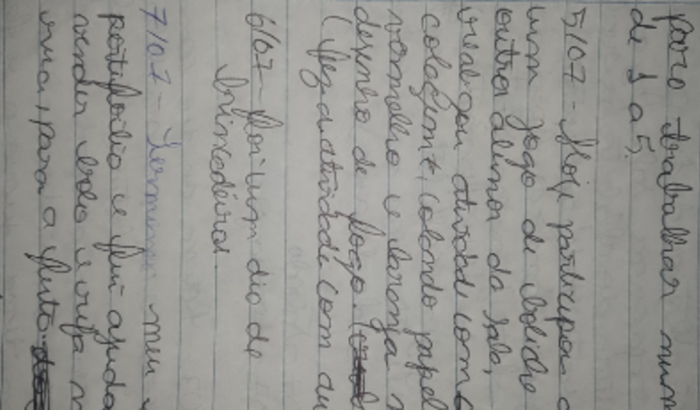 para trabalhar num
de 1 a 5.
5/07 - Hoje participou
um jogo de boliche
outra aluna da sala,
atividade com
colagem, colando papel
vermelho e laranja
desenho de fogo
(fez a atividade com
6/07 - Foi um dia de
brincadeira.
7/07 - Terminei meu
portfólio e fui ajuda
vender bolo e rifa
rua, para a